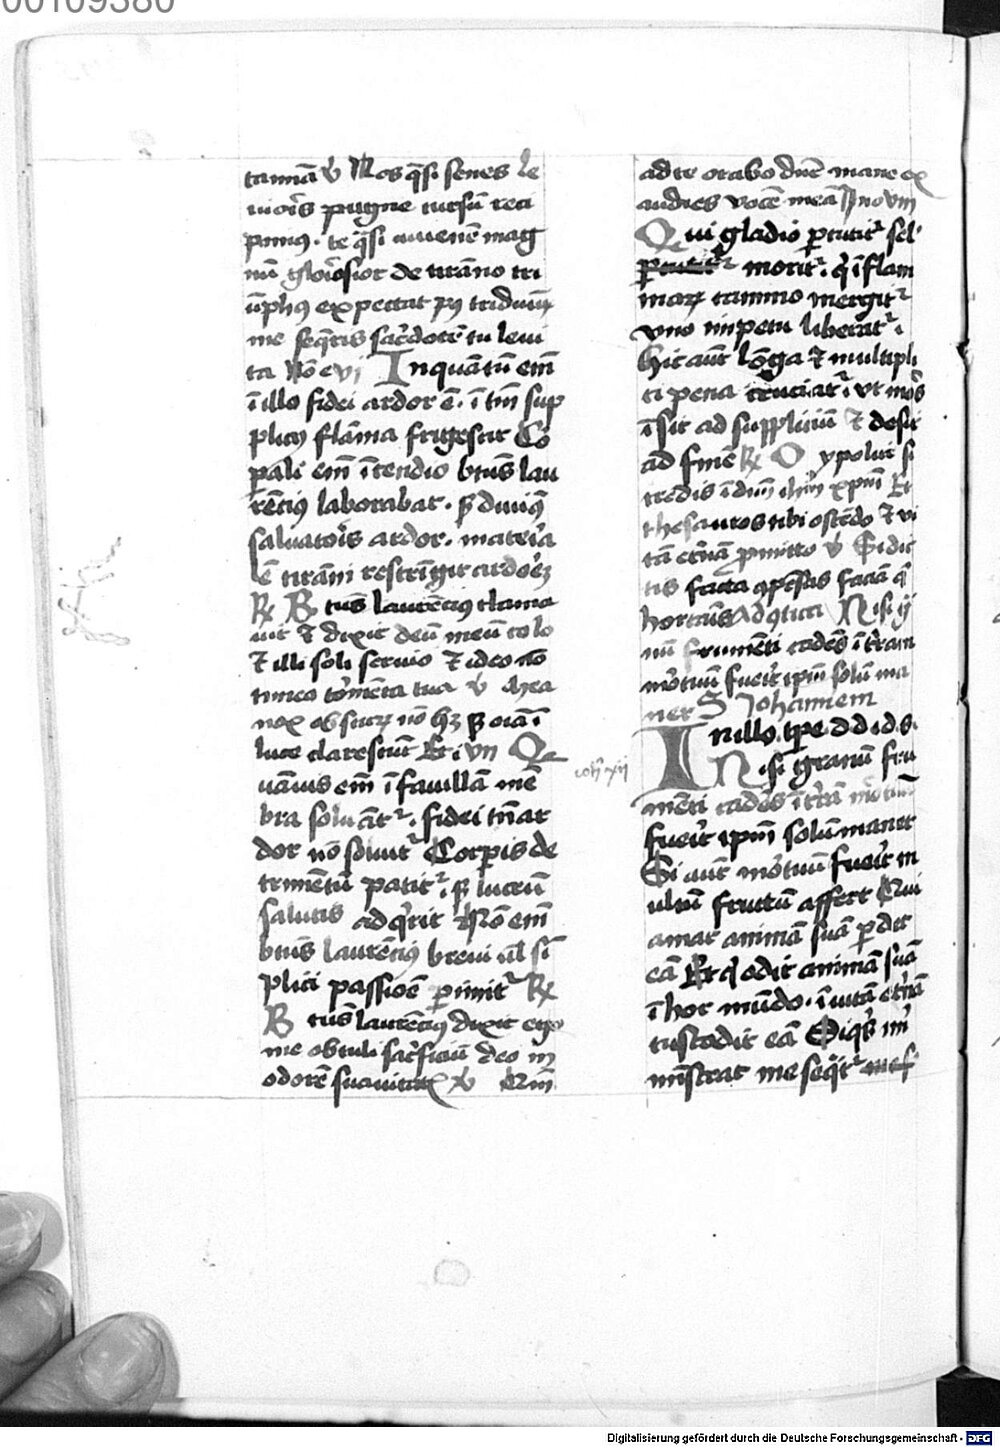 00109380
tannā v̄ Nos q̄si senes le
uioris pugne cursū reci
pimus · te q̄si iuuenē mag
nū gloriosior de tiranno tri
ūphus expectat post triduum
me sequeris sacerdotē tu leui
ta Nōe vi Inquātū em̄
ī illo fidei ardor ē · ī tm̄ sup
plicij flāma frigescit Co
pali em̄ ītendio btūs lau
rēcius laborabat · sȝ diuinꝰ
saluatoris ardor · materia
ē tiranni restringit ardorē
℞ B tus laurēcius clama
uit ⁊ dixit deū meū colo
⁊ illi soli seruio ⁊ ideo nō
timeo tormēta tua v̄ Mea
nox obscurꝫ nō hȝ sȝ oīa ī
luce clarescūt Et i vn Qͣ
uāuis em̄ ī fauillā mē
bra soluātr · fidei tn̄ ar
dor nō soluitr Corpis de
trimētū patitr · sȝ lucrū
salutis adq̄rit Nō em̄
btūs laurēcius breui ul̄ sī
plici passiōe pimitr ℞
B tūs laurēcius dixit ego
me obtuli sacrificiū deo in
odorē suauitatꝫ v̄ Qm̄
ad te orabo dn̄e mane ex
audies vocē meā Jn ovm
Qui gladio pcutitr sel
moritr · qͥ ī flam
marꝫ camino mergitr
vno impetu liberatr ·
hic aūt lōga ⁊ multipli
ci pena cruciatr · vt mors
ī sit ad suppliciū ⁊ desit
ad finē ℞ O ypolite si
credis ī dnm̄ ihm̄ xpm̄ Et
thesauros tibi ostēdo ⁊ vi
tā eternā promitto v̄ Si dic
tis facta cōpēsas faciā qͥ
hortaris Ad oticiā Nisi g
nū frumēti cadēs ī terram
mortuū fuerit ipm̄ solū ma
net S Johannem
In illo tpe d d i d s
Nisi granū fru
mēti cadēs ī terrā mortuū
fuerit ipm̄ solū manet
Si aūt mortuū fuerit m
ultū fructū affert Qui
amat animā suā pdet
eā Et q̄ odit animā suā
ī hoc mūdo · ī vitā eternā
custodit eā Siqͥs mͥ
nistrat me seq̄tr
ioh xij
Digitalisierung gefördert durch die Deutsche Forschungsgemeinschaft - DFG